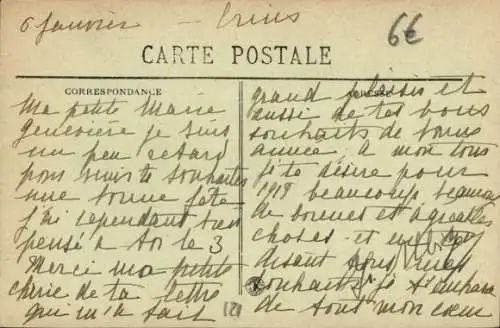 6 Janvier -
6€
CARTE POSTALE
CORRESPONDANCE
ADRESSE
Ma petite Marie
Geneviève je suis
un peu retard
pour venir te souhaiter
une bonne fête
j'ai cependant bien
pensé à toi le 3
Merci ma petite
chérie de ta lettre
qui m'a fait
121
grand plaisir et
aussi de tes bons
souhaits de bonne
année à mon tour
je te désire pour
1918 beaucoup beaucoup
de bonnes et agréables
choses et en te
disant tous mes
souhaits je t'embrasse
de tout mon cœur